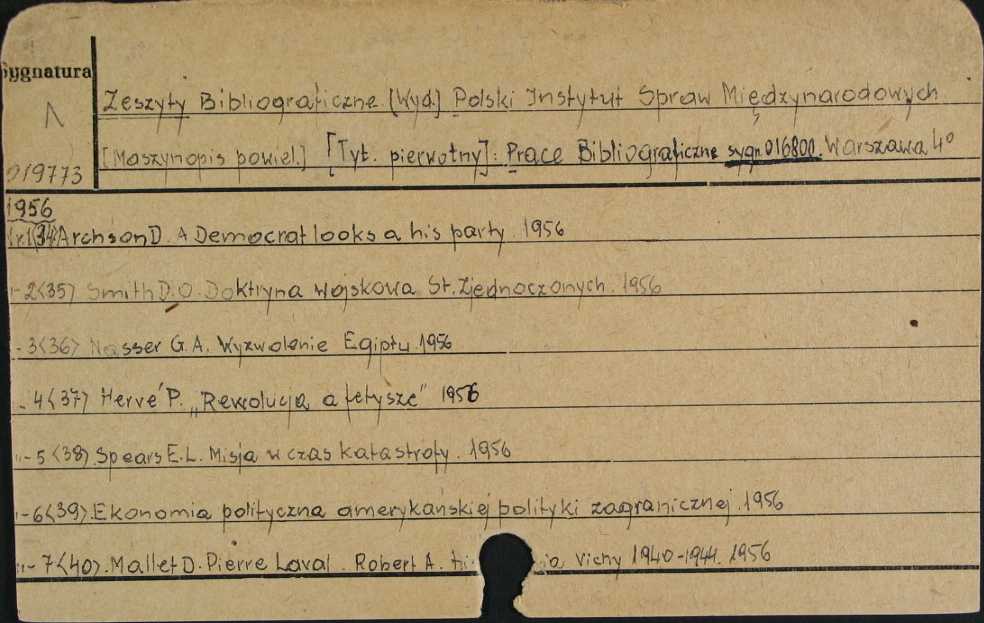 Sygnatura
Zeszyty Bibliograficzne [Wyd.] Polski Instytut Spraw Międzynarodowych
[Maszynopis powiel.] [Tyt. pierwotny]: Prace Bibliograficzne sygn. 016800. Warszawa 4°
019773
1956
Nr 1(34) Archson D. A Democrat looks a his party. 1956
-2<35> Smith D.O. Doktryna wojskowa St. Zjednoczonych. 1956
-3<36> Nasser G.A. Wyzwolenie Egiptu. 1956
-4<37> Hervé P. „Rewolucja a fetysze" 1956
"-5<38>. Spears E.L. Misja w czas katastrofy. 1956
"-6<39>. Ekonomia polityczna amerykańskiej polityki zagranicznej. 1956
"-7<40>. Mallet D. Pierre Laval. Robert A. Vichy 1940-1944. 1956